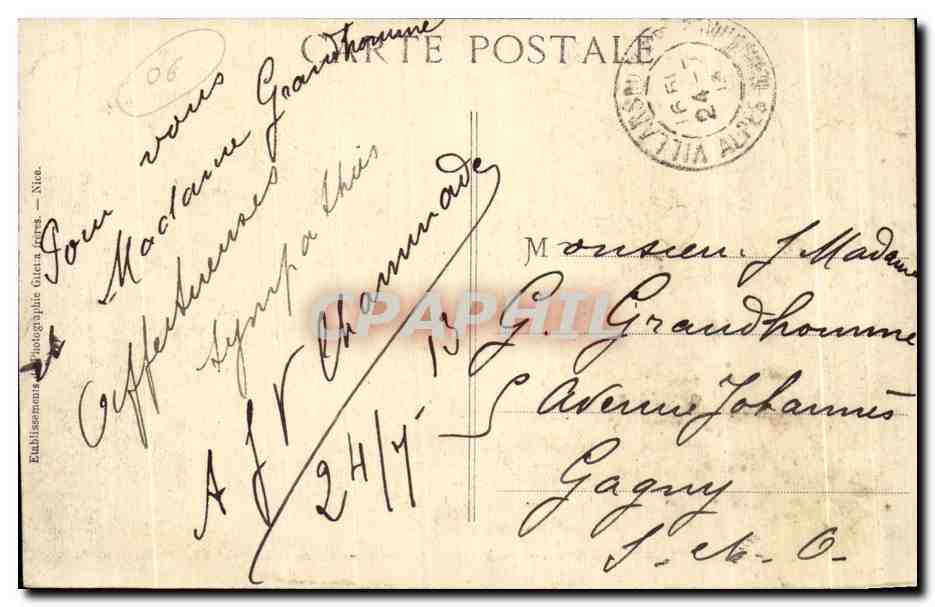 CARTE POSTALE
06
Pour vous
Madame Grandhomme
Affectueuses
sympathies
A J V Chaminade
24/7 13
Monsieur & Madame
G. Grandhomme
5 Avenue Johannès
Gagny
S.-et-O.
VILLARS DU VAR
16 51
24 - 7
13
ALPES MARITIMES
Etablissements de Photographie Giletta frères. — Nice.
CPAPHIL